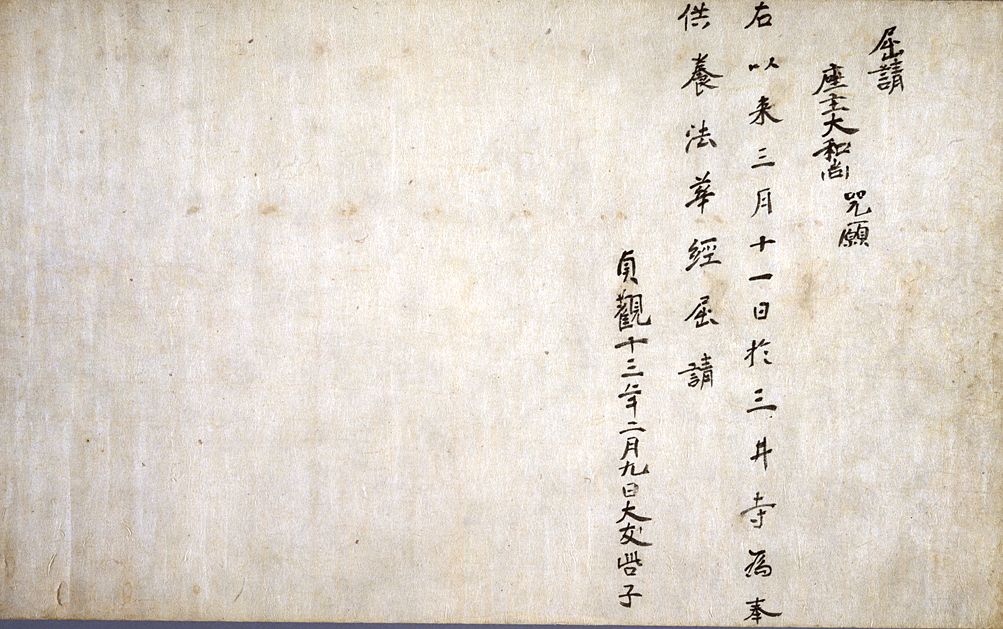 屈請
座主大和尚 咒願
右以来三月十一日於三井寺爲奉
供養法華經屈請
貞觀十三年二月九日大友子